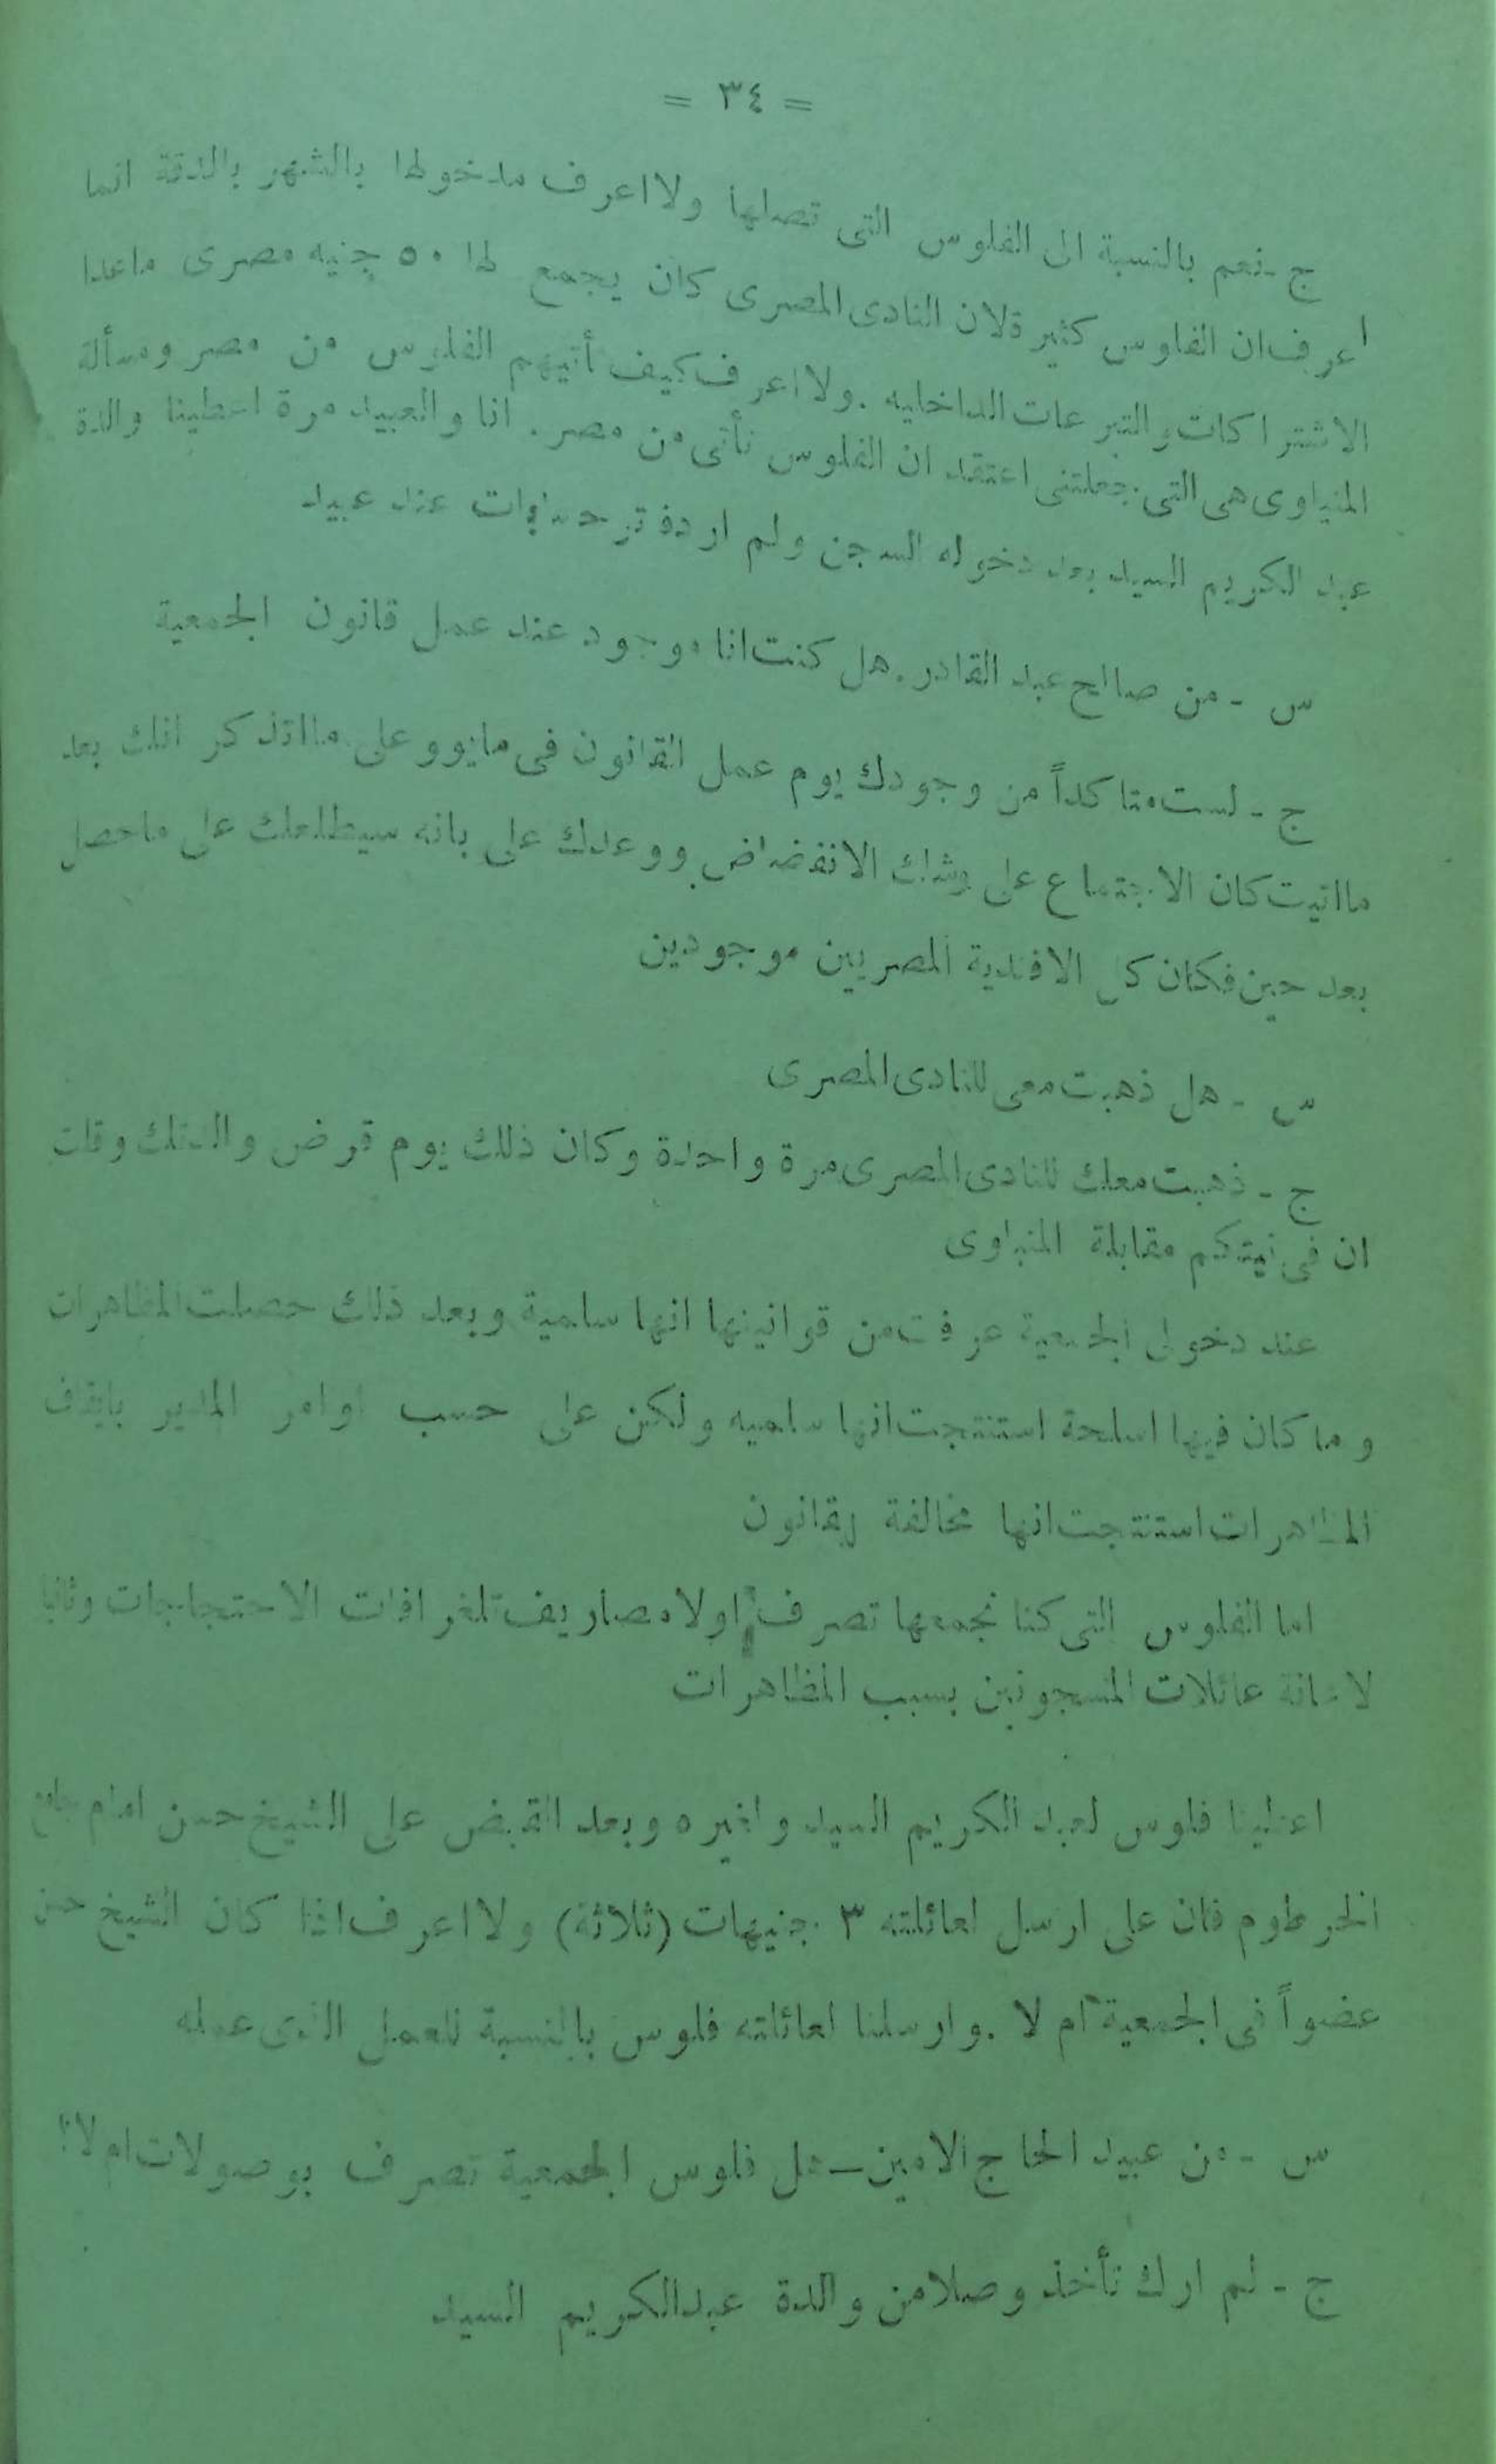 = ٣٤ =
ج - نعم بالنسبة الى الفلوس التى تصلها ولا اعرف مدخولها بالشهر بالدقة انما
اعرف ان الفلوس كثيرة لان النادى المصرى كان يجمع لها ٥٠ جنيه مصرى ماعدا
الاشتراكات والتبرعات الداخليه . ولا اعرف كيف أتيهم الفلوس من مصر ومسألة
المنياوى هى التى جعلتنى اعتقد ان الفلوس تأتى من مصر . انا والعبيد مرة اعطينا والدة
عبد الكريم السيد بعد دخوله السجن ولم ار دفتر حسابات عند عبيد
س - من صالح عبد القادر . هل كنت انا موجود عند عمل قانون الجمعية
ج - لست متا كداً من وجودك يوم عمل القانون فى مايو وعلى مااتذكر انك بعد
مااتيت كان الاجتماع على وشك الانفضاض ووعدك على بانه سيطلعك على ماحصل
بعد حين فكان كل الافندية المصريين موجودين
س - هل ذهبت معى للنادى المصرى
ج - ذهبت معك للنادى المصرى مرة واحدة وكان ذلك يوم قرض والدتك وقلت
ان فى نيتكم مقابلة المنياوى
عند دخولى الجمعية عرفت من قوانينها انها سلمية وبعد ذلك حصلت المظاهرات
وما كان فيها اسلحة استنتجت انها سلميه ولكن على حسب اوامر المدير بايقاف
المظاهرات استنتجت انها مخالفة لقانون
اما الفلوس التى كنا نجمعها تصرف اولا مصاريف تلغرافات الاحتجاجات وثانيا
لاعانة عائلات المسجونين بسبب المظاهرات
اعطينا فلوس لعبد الكريم السيد واغيره وبعد القبض على الشيخ حسن امام جامع
الخرطوم فان على ارسل لعائلته ٣ جنيهات (ثلاثة) ولا اعرف اذا كان الشيخ حسن
عضواً فى الجمعية ام لا . وارسلنا لعائلته فلوس بالنسبة للعمل الذى عمله
س - من عبيد الحاج الامين – هل فلوس الجمعية تصرف بوصولات ام لا؟
ج - لم ارك تأخذ وصلا من والدة عبدالكريم السيد